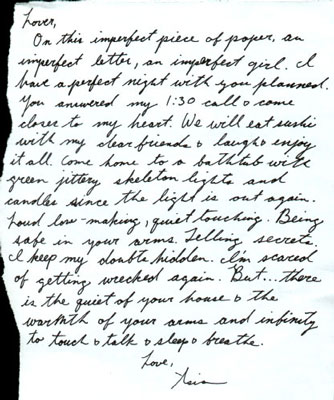 Lover,
On this imperfect piece of paper, an
imperfect letter, an imperfect girl. I
have a perfect night with you planned.
You answered my 1:30 call & come
closer to my heart. We will eat sushi
with my dear friends & laugh & enjoy
it all. Come home to a bathtub with
green jittery skeleton lights and
candles since the light is out again.
Loud love-making, quiet touching. Being
safe in your arms. Telling secrets.
I keep my double hidden. I'm scared
of getting wrecked again. But... there
is the quiet of your house & the
warmth of your arms and infinity
to touch & talk & sleep & breathe.
Love,